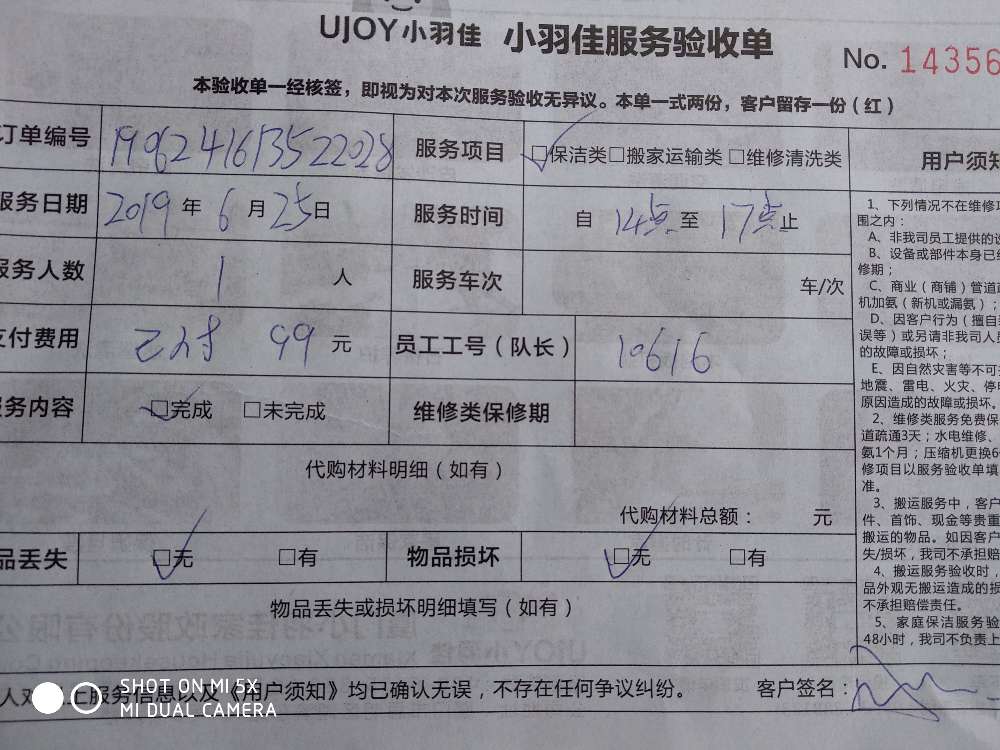 UJOY小羽佳 小羽佳服务验收单
No. 14356
本验收单一经核签，即视为对本次服务验收无异议。本单一式两份，客户留存一份（红）
订单编号 1906241613522028 服务项目 □保洁类□搬家运输类□维修清洗类
服务日期 2019年6月25日 服务时间 自14点至17点止
服务人数 1人 服务车次 车/次
支付费用 已付 99元 员工工号（队长） 10616
服务内容 □完成 □未完成 维修类保修期
代购材料明细（如有）
代购材料总额： 元
品丢失 □无 □有 物品损坏 □无 □有
物品丢失或损坏明细填写（如有）
人对 上服务信息以及《用户须知》均已确认无误，不存在任何争议纠纷。 客户签名：
用户须知
1、下列情况不在维修
围之内：
A、非我司员工提供的
B、设备或部件本身已
修期；
C、商业（商铺）管道
机加氨（新机或漏氨）；
D、因客户行为（擅自
误等）或另请非我司人
的故障或损坏；
E、因自然灾害等不可
地震、雷电、火灾、停
原因造成的故障或损坏。
2、维修类服务免费保
道疏通3天；水电维修、
氨1个月；压缩机更换6
修项目以服务验收单填
准。
3、搬运服务中，客户
件、首饰、现金等贵重
搬运的物品。如因客户
失/损坏，我司不承担赔
4、搬运服务验收时，
品外观无搬运造成的损
不承担赔偿责任。
5、家庭保洁服务验
48小时，我司不负责上
SHOT ON MI 5X
MI DUAL CAMERA